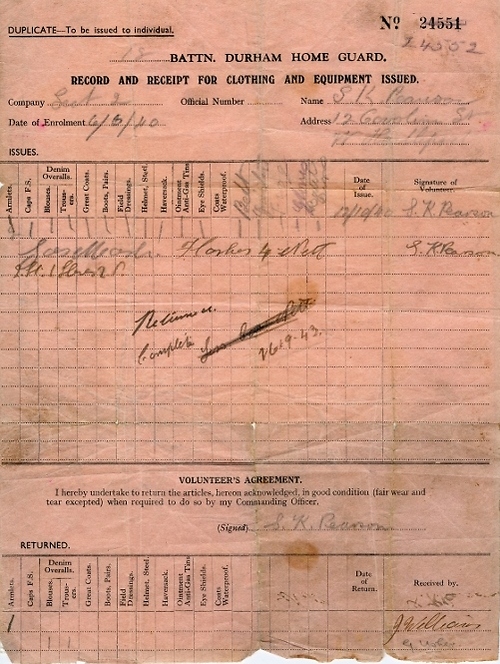 DUPLICATE—To be issued to individual.
Nº 24551
24552
18 BATTN. DURHAM HOME GUARD.
RECORD AND RECEIPT FOR CLOTHING AND EQUIPMENT ISSUED.
Company Official Number Name S. K. Pearson
Date of Enrolment 6/6/40 Address 12
ISSUES.
Armlets.
Caps F.S.
Denim Overalls.
Blouses.
Trousers.
Great Coats.
Boots, Pairs.
Field Dressings.
Helmet, Steel.
Haversack.
Ointment Anti-Gas Tins
Eye Shields.
Coats Waterproof.
Date of Issue.
Signature of Volunteer.
S. K. Pearson
S. K. Pearson
Complete
26.9.43.
VOLUNTEER'S AGREEMENT.
I hereby undertake to return the articles, hereon acknowledged, in good condition (fair wear and
tear excepted) when required to do so by my Commanding Officer.
(Signed) S. K. Pearson
RETURNED.
Armlets.
Caps F.S.
Denim Overalls.
Blouses.
Trousers.
Great Coats.
Boots, Pairs.
Field Dressings.
Helmet, Steel.
Haversack.
Ointment Anti-Gas Tins
Eye Shields.
Coats Waterproof.
Date of Return.
Received by.
J Williams